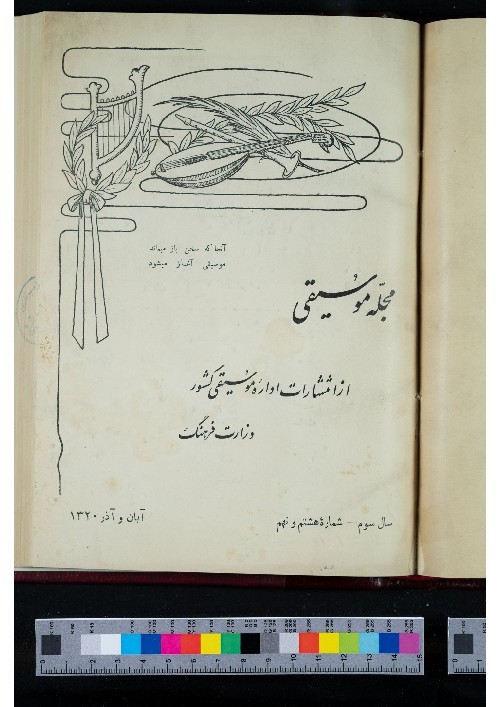 آنجا که سخن باز میماند
موسیقی آغاز میشود
مجلّه موسیقی
از انتشارات ادارهٔ موسیقی کشور
وزارت فرهنگ
سال سوم - شمارهٔ هشتم و نهم
آبان و آذر ۱۳۲۰